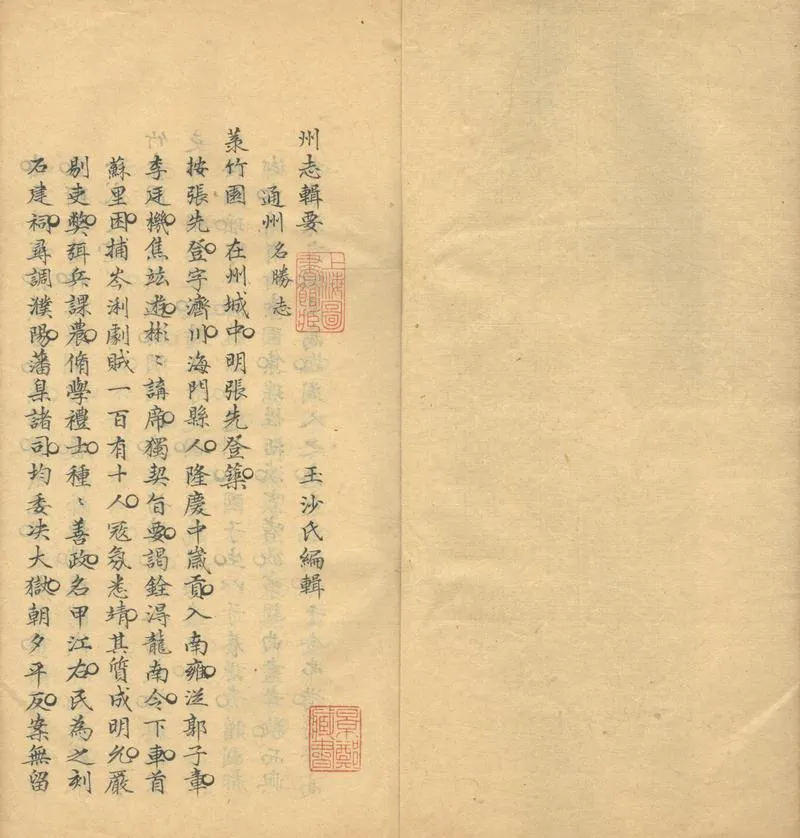 州志輯要 玉沙氏編輯
通州名勝志
菉竹園 在州城中。明張先登築。
按張先登。字濟川。海門縣人。隆慶中歲貢。入南雍。從郭子章。
李廷機。焦竑遊。彬〻講席。獨契旨要。謁銓得龍南令。下車。首
蘇里困。捕岑浰劇賊一百有十人。寇氛悉靖。其質成明允。嚴
剔吏弊。弭兵課農。脩學禮士。種〻善政。名甲江右。民為之刻
石建祠。尋調濮陽。藩臬諸司。均委决大獄。朝夕平反。案無留
上海圖書館藏
景鄭藏書